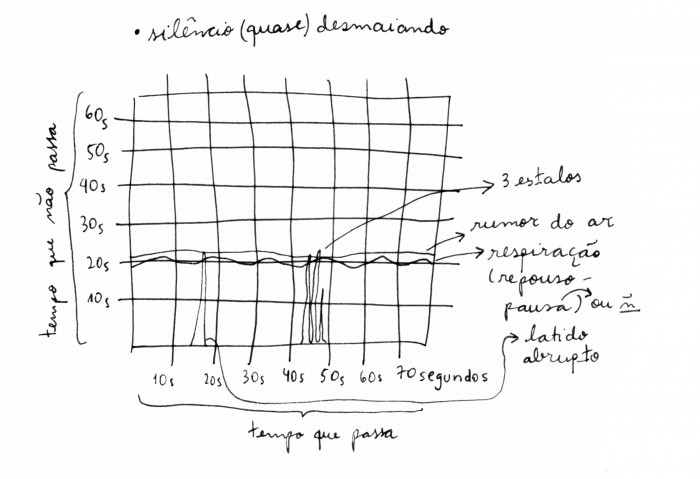 • silêncio (quase) desmaiando
tempo que não passa
60s
50s
40s
30s
20s
10s
3 estalos
rumor do ar
respiração
(repouso -
pausa) ou ñ
latido
abrupto
10s 20s 30s 40s 50s 60s 70 segundos
tempo que passa